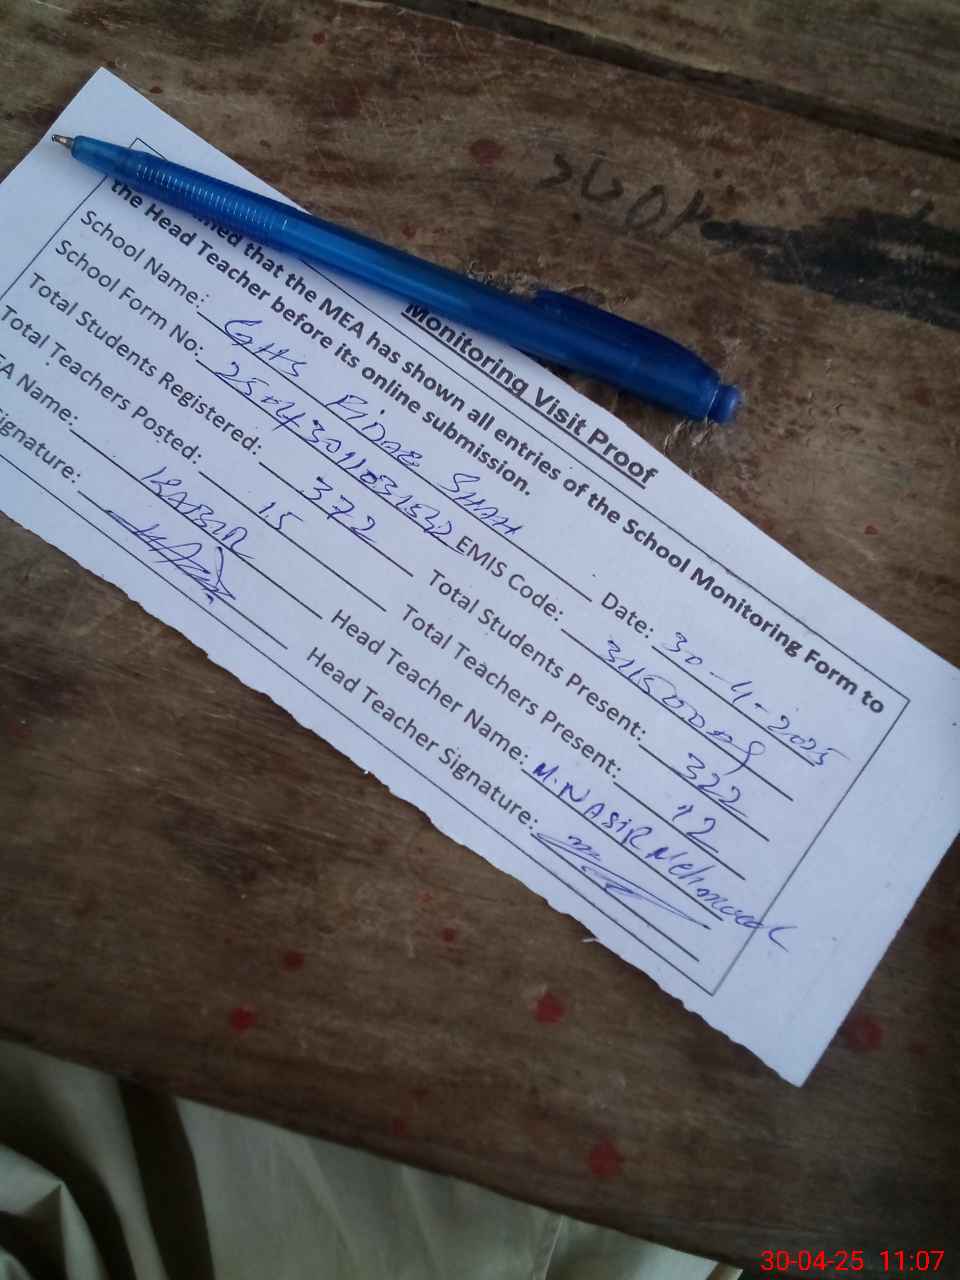 Monitoring Visit Proof
that the MEA has shown all entries of the School Monitoring Form to
the Head Teacher before its online submission.
School Name: GHS FIDAE SHAH Date: 30-4-2025
School Form No: EMIS Code:
Total Students Registered: 372 Total Students Present: 322
Total Teachers Posted: 15 Total Teachers Present: 12
EA Name: KABIR Head Teacher Name: M. NASIR Mehmood
ignature: Head Teacher Signature:
30-04-25 11:07